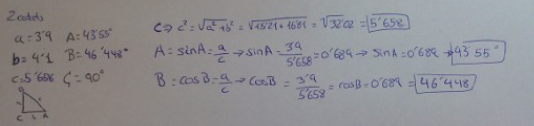 2 catets
a = 3'9 A = 43'55°
b = 4'1 B = 46'448°
c = 5'658 C = 90°
C A
C → c² = √a²+b² = √1521+1681 = √3202 = 5'658
A = sinA = a/c → sinA = 3'9/5'658 = 0'689 → sinA = 0'689 → 43'55°
B = cosB = a/c → cosB = 3'9/5'658 = cosB = 0'689 = 46'448